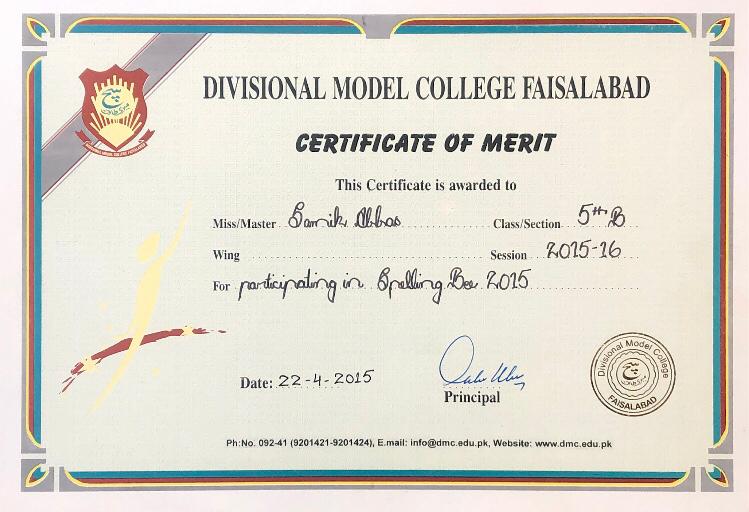 DIVISIONAL MODEL COLLEGE FAISALABAD
CERTIFICATE OF MERIT
This Certificate is awarded to
Miss/Master Samik Abbas Class/Section 5th B
Wing Session 2015-16
For participating in Spelling Bee 2015
Date: 22-4-2015
Principal
Divisional Model College
FAISALABAD
Ph:No. 092-41 (9201421-9201424), E.mail: info@dmc.edu.pk, Website: www.dmc.edu.pk